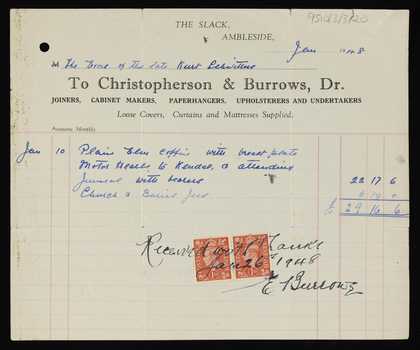 9510/3/3/20
THE SLACK,
AMBLESIDE,
Jan 1948
M The Exors of the late Kurt Schwitters
To Christopherson & Burrows, Dr.
JOINERS, CABINET MAKERS, PAPERHANGERS, UPHOLSTERERS AND UNDERTAKERS
Loose Covers, Curtains and Mattresses Supplied.
Accounts Monthly
Jan 10 Plain Elm coffin with breast plate
Motor Hearse to Kendal, & attending
funeral with bearers 22 17 6
Church & Burial fees 6 19 0
£ 29 16 6
Received with Thanks
Jan 26th 1948
E Burrows